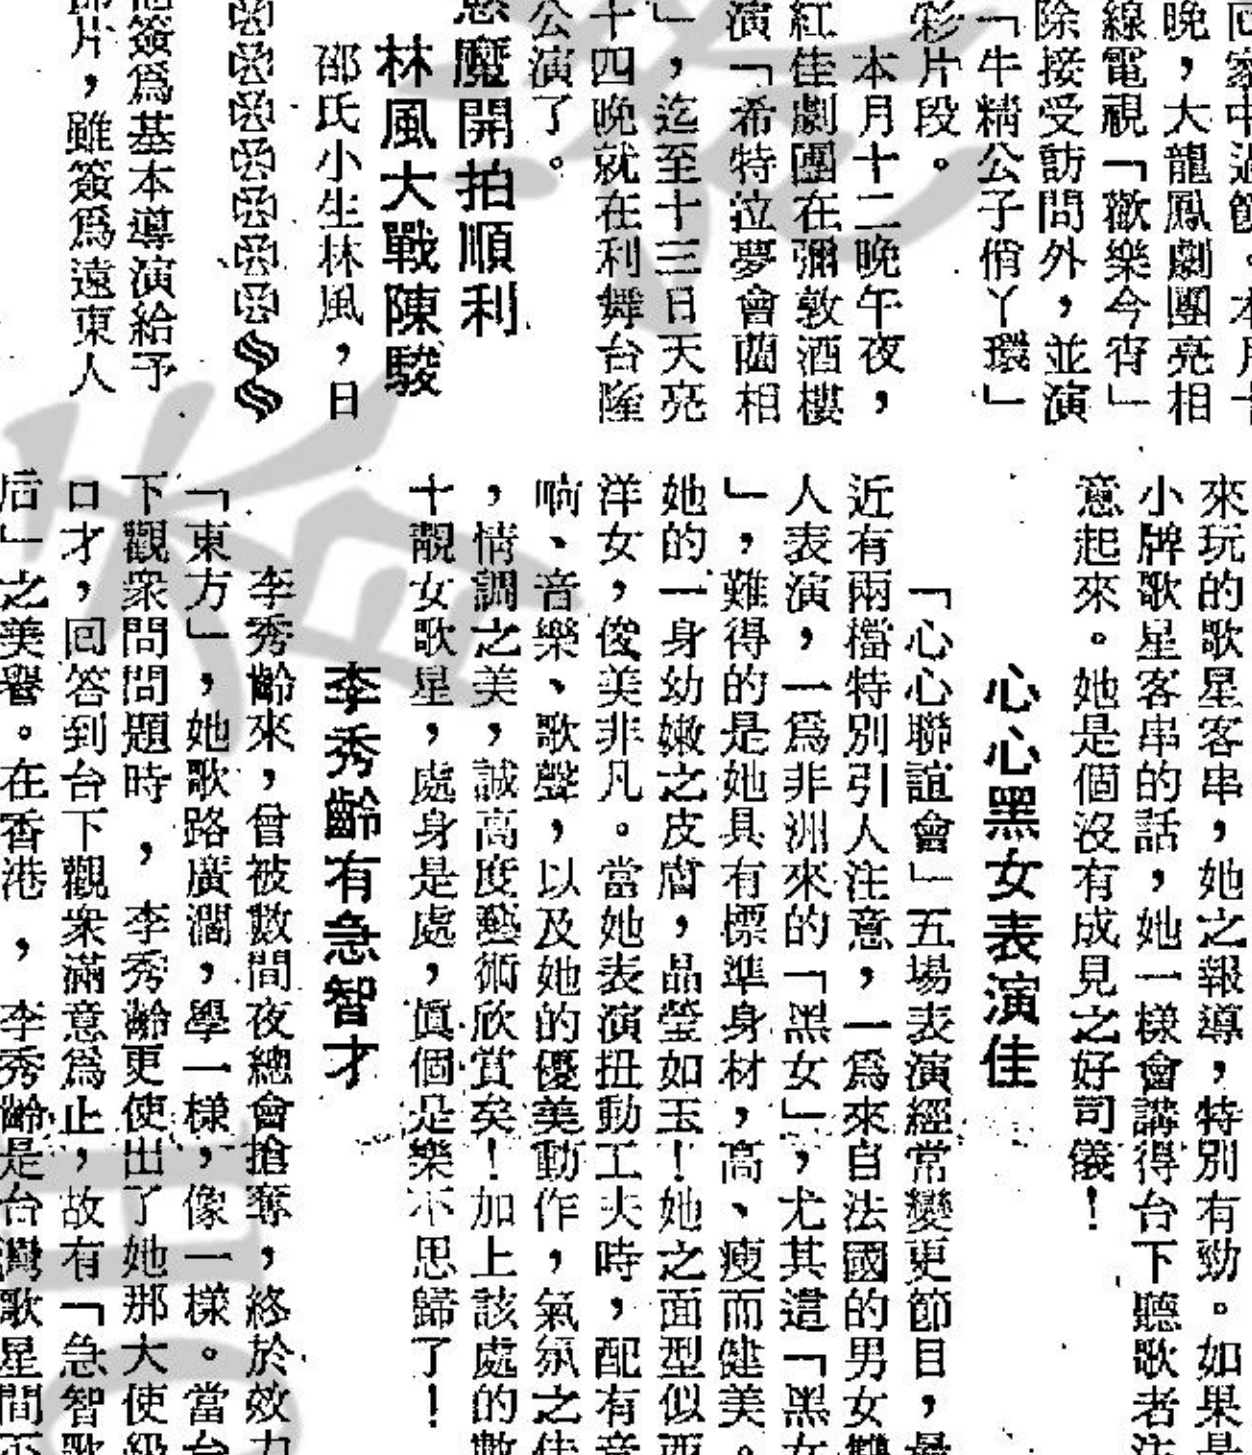 回家中過節。本月十
晚，大龍鳳劇團亮相
線電視「歡樂今宵」
除接受訪問外，並演
「牛精公子俏丫環」
彩片段。
本月十二晚午夜，
紅佳劇團在彌敦酒樓
演「希特泣夢會蘭相
」，迄至十三日天亮
十四晚就在利舞台隆
公演了。
魔開拍順利
林風大戰陳駿
邵氏小生林風，日
簽爲基本導演給予
片，雖簽爲遠東人
來玩的歌星客串，她之報導，特別有勁。如果是
小牌歌星客串的話，她一樣會講得台下聽歌者注
意起來。她是個沒有成見之好司儀！
心心黑女表演佳
「心心聯誼會」五場表演經常變更節目，最
近有兩檔特別引人注意，一爲來自法國的男女雙
人表演，一爲非洲來的「黑女」，尤其這「黑女
」，難得的是她具有標準身材，高、瘦而健美。
她的一身幼嫩之皮膚，品瑩如玉！她之面型似西
洋女，俊美非凡。當她表演扭動工夫時，配有音
响、音樂、歌聲，以及她的優美動作，氣氛之佳
，情調之美，誠高度藝術欣賞矣！加上該處的數
十靚女歌星，處身是處，眞個是樂不思歸了！
李秀齡有急智才
李秀齡來，曾被數間夜總會搶奪，終於效力
「東方」，她歌路廣濶，學一樣，像一樣。當台
下觀衆問問題時，李秀齡更使出了她那大使級
口才，回答到台下觀衆滿意爲止，故有「急智歌
后」之美譽。在香港，李秀齡是台灣歌星間不